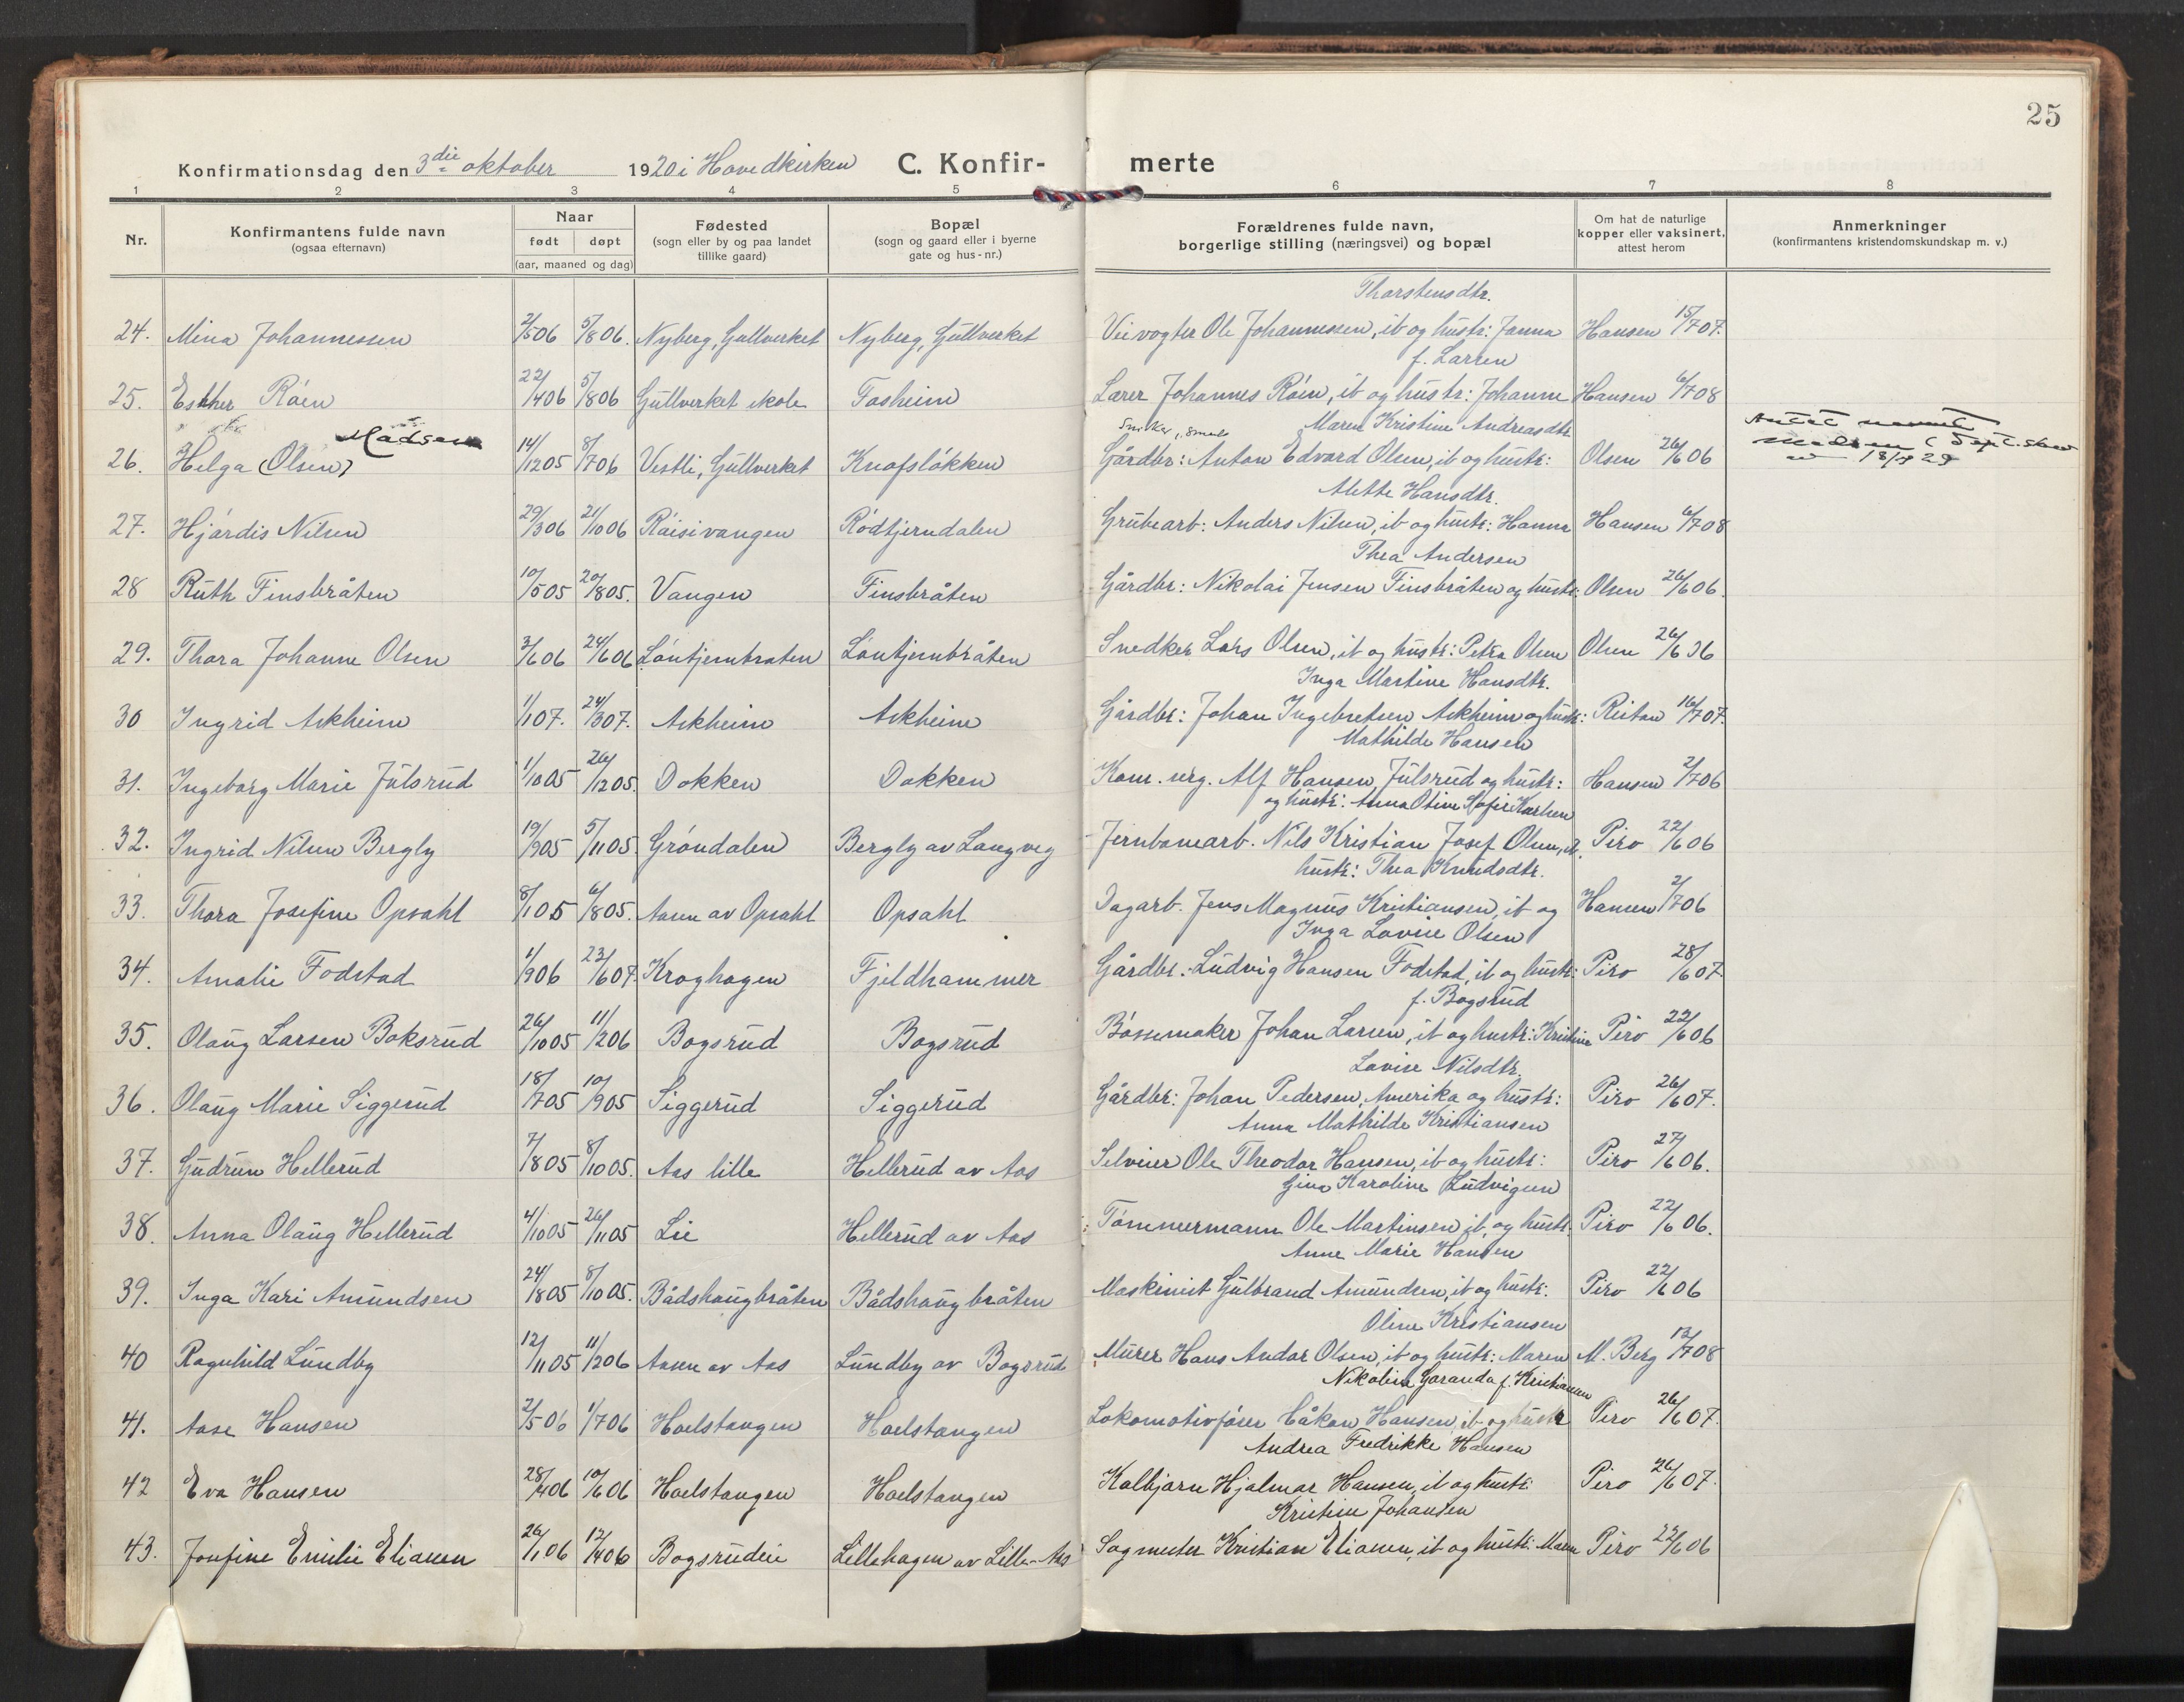 25
Konfirmationsdag den 3die oktober 1920 i Hovedkirken C. Konfir-merte
1 2 3 4 5 6 7 8
Nr. Konfirmantens fulde navn (ogsaa efternavn) Naar født døpt (aar, maaned og dag) Fødested (sogn eller by og paa landet tillike gaard) Bopæl (sogn og gaard eller i byerne gate og hus-nr.) Forældrenes fulde navn, borgerlige stilling (næringsvei) og bopæl Om hat de naturlige kopper eller vaksinert, attest herom Anmerkninger (konfirmantens kristendomskundskap m. v.)
Thorstensdtr.
24. Mina Johannessen 2/5 06 5/8 06. Nyberg, Gullverket Nyberg, Gullverket Veivogter Ole Johannessen, ib og hustr: Janna Hansen 15/7 07.
f. Larsen
25. Esther Róen 22/4 06 5/8 06 Gullverket skole Fosheim Lærer Johannes Róen, ib og hustr: Johanne Hansen 6/7 08
Madsen Maren Kristine Andreasdtr Antat navnet
26. Helga (Olsen) 14/12 05 8/7 06 Vestli, Gullverket Knofsløkken Gårdbr: Anton Edvard Olsen, ib og hustr: Olsen 26/6 06 Madsen 18/7 29
Alette Hansdtr.
27. Hjórdis Nilsen 29/3 06 21/10 06 Ráisivangen Ródtjerndalen Grubearb: Anders Nilsen, ib og hustr: Hanna Hansen 6/7 08
Thea Andersen
28 Ruth Finsbråten 10/5 05 20/8 05. Vangen Finsbråten Gårdbr: Nikolai Jensen Finsbråten og hustr: Olsen 26/6 06.
29. Thora Johanne Olsen 3/6 06 24/6 06 Lóntjernbraten Lóntjernbråten Snedker Lars Olsen, ib og hustr: Petra Olsen Olsen 26/6 06
Inga Martine Hansdtr.
30 Ingrid Askheim 1/1 07. 24/3 07. Askheim Askheim Gårdbr: Johan Ingebretsen Askheim og hustr: Ristan 16/7 07.
Mathilde Hansen
31. Ingeborg Marie Julsrud 1/10 05 26/12 05. Dokken Dokken Kom. urg. Alf Hansen Julsrud og hustr: Hansen 2/7 06
og hustr: Anna Otine Sofie Karlsen
32. Ingrid Nilsen Bergly 19/9 05 5/11 05 Gróndalen Bergly av Langveg Jernbanearb. Nils Kristian Josef Olsen, ib. Piro 22/6 06
hustr: Thea Knudsdtr.
33. Thora Josefine Opsahl 8/1 05 6/8 05. Aasen av Opsahl Opsahl Dagarb. Jens Magnus Kristiansen, ib og Hansen 2/7 06
Inga Lovise Olsen
34. Amalie Fodstad 1/9 06 23/6 07. Kroghagen Fjeldhammer Gårdbr. Ludvig Hansen Fodstad, ib og hustr: Piro 28/6 07
f. Bogsrud
35. Olaug Larsen Boksrud 26/10 05 11/2 06 Bogsrud Bogsrud Bóssemaker Johan Larsen, ib og hustr: Kristine Piro 22/6 06
Lovise Nilsdtr.
36. Olaug Marie Siggerud 18/7 05 10/9 05 Siggerud Siggerud Gårdbr: Johan Pedersen, Amerika og hustr: Piro 26/6 07.
Anna Mathilde Kristiansen
37. Gudrun Hellerud 7/8 05 8/10 05. Aas lille Hellerud av Aas Selveier Ole Theodor Hansen, ib og hustr: Piro 27/6 06.
Gina Karoline Ludvigsen
38. Anna Olaug Hellerud 4/10 05 26/11 05 Lie Hellerud av Aas Tómmermann Ole Martinsen, ib, og hustr. Piro 22/6 06.
Anne Marie Hansen
39. Inga Kari Amundsen 24/8 05 8/10 05. Bådshaugbråten Bådshaugbråten Maskinist Gulbrand Amundsen, ib og hustr. Piro 22/6 06
Oline Kristiansen
40 Ragnhild Lundby 12/11 05 11/2 06 Aasen av Aas Lundby av Bogsrud Murer Hans Andor Olsen, ib og hustr: Maren M. Berg 13/7 08
Nikoline Garanda f. Kristiansen
41. Aase Hansen 2/5 06 1/7 06 Hoelstangen Hoelstangen Lokomotivfører Håkon Hansen, ib og hustr Piro 26/6 07.
Andrea Fredrikke Hansen
42 Eva Hansen 28/4 06 10/6 06 Hoelstangen Hoelstangen Kalbjørn Hjalmar Hansen, ib og hustr: Piro 26/6 07.
Kristine Johansen
43. Josefine Emilie Eliasen 26/1 06 12/4 06 Bogsrudeie Lillehagen av Lille-Aas Sagmester Kristian Eliasen, ib og hustr. Maren Piro 22/6 06